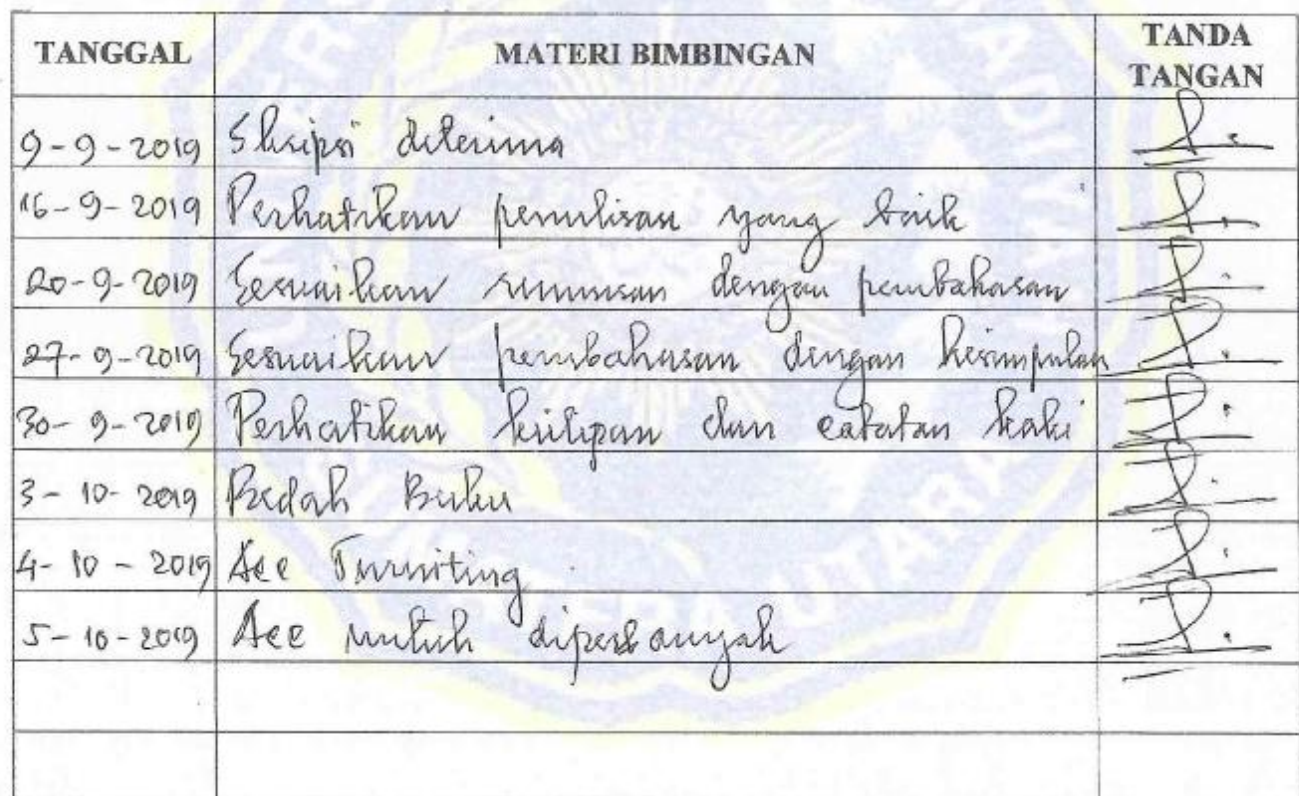 TANGGAL MATERI BIMBINGAN TANDA TANGAN
9-9-2019 Skripsi diterima
16-9-2019 Perhatikan penulisan yang baik
20-9-2019 Sesuaikan rumusan dengan pembahasan
27-9-2019 Sesuaikan pembahasan dengan kesimpulan
30-9-2019 Perhatikan kutipan dan catatan kaki
3-10-2019 Bedah Buku
4-10-2019 Acc Turniting
5-10-2019 Acc untuk diperbanyak
UTARA